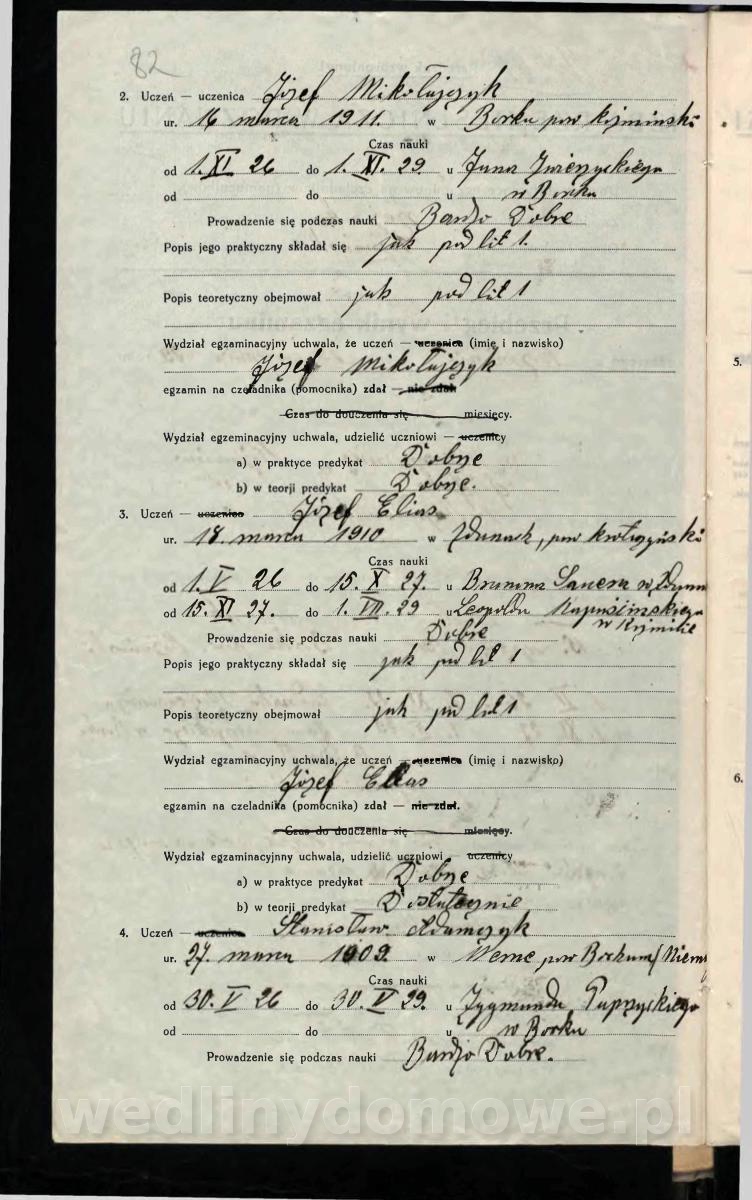 82
2. Uczeń — uczenica Józef Mikołajczyk
ur. 16 marca 1911. w Borku pow
Czas nauki
od 1. XI 26 do 1. XI. 29 u Jana
od do u w Borku
Prowadzenie się podczas nauki Bardzo Dobre
Popis jego praktyczny składał się jak pod lit 1.
Popis teoretyczny obejmował jak pod lit 1
Wydział egzaminacyjny uchwala, że uczeń — uczenica (imię i nazwisko)
Józef Mikołajczyk
egzamin na czeladnika (pomocnika) zdał — nie zdał
Czas do douczenia się miesięcy.
Wydział egzeminacyjny uchwala, udzielić uczniowi — uczenicy
a) w praktyce predykat Dobrze
b) w teorji predykat Dobrze.
3. Uczeń — uczenica Józef Elias
ur. 18. marca 1910 w Zdunach, pow
Czas nauki
od 1. V 26 do 15. X 27. u Brunona w
od 15. XI 27. do 1. VII. 29 u Leopolda
w
Prowadzenie się podczas nauki Dobre
Popis jego praktyczny składał się jak pod lit 1
Popis teoretyczny obejmował jak pod lit 1
Wydział egzaminacyjny uchwala, że uczeń — uczenica (imię i nazwisko)
Józef Elias
egzamin na czeladnika (pomocnika) zdał — nie zdał.
Czas do douczenia się miesięcy.
Wydział egzaminacyjnny uchwala, udzielić uczniowi uczenicy
a) w praktyce predykat Dobrze
b) w teorji predykat Dostatecznie
4. Uczeń — uczenica Stanisław Adamczyk
ur. 27. marca 1909. w Werne pow Bochum
Czas nauki
od 30. V 26 do 30. V 29. u Zygmunta
od do u w Borku
Prowadzenie się podczas nauki Bardzo Dobre.
5.
6.
wedlinydomowe.pl